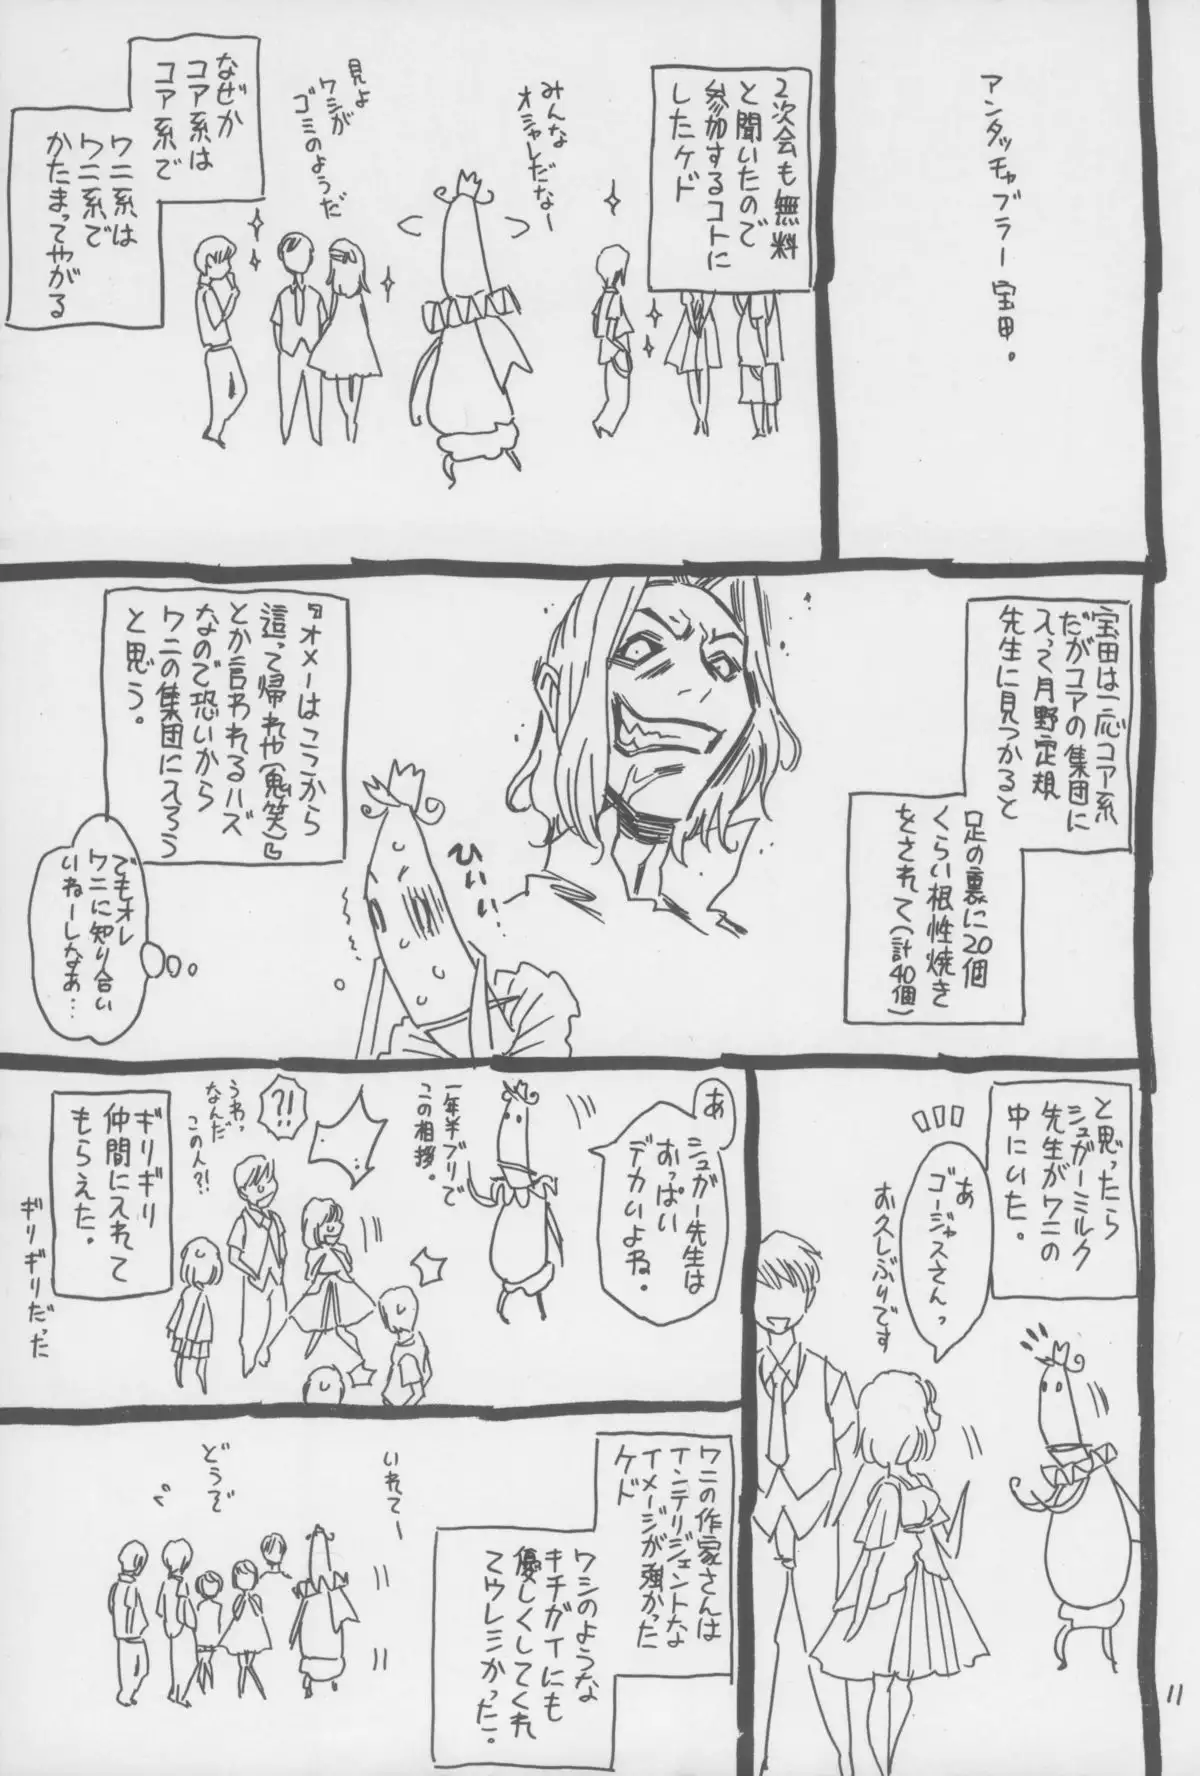 アンタッチャブラー宝田。
2次会も無料
と聞いたので
参加するコトに
したケド
みんな
オシャレだなー
見よ
ワシが
ゴミのようだ
なぜか
コア系は
コア系で
ワニ系は
ワニ系で
かたまってやがる
宝田は一応コア系
だがコアの集団に
入って月野定規
先生に見つかると
足の裏に20個
くらい根性焼き
をされて(計40個)
『オメーはここから
這って帰れや(鬼笑)』
とか言われるハズ
なので恐いから
ワニの集団に入ろう
と思う。
ひぃぃぃ
でもオレ
ワニに知り合い
いねーしなぁ…
と思ったら
シュガーミルク
先生がワニの
中にいた。
あ
ゴージャスさんっ
お久しぶりです
あ
シュガー先生は
おっぱい
デカいよね。
一年半ブリで
この相拶。
?!
うわっ
なんだ
この人?!
ギリギリ
仲間に入れて
もらえた。
ギリギリだった
ワニの作家さんは
インテリジェントな
イメージが強かった
ケド
ワシのような
キチガイにも
優しくしてくれ
てウレシかった。
いれてー
どうぞ
11